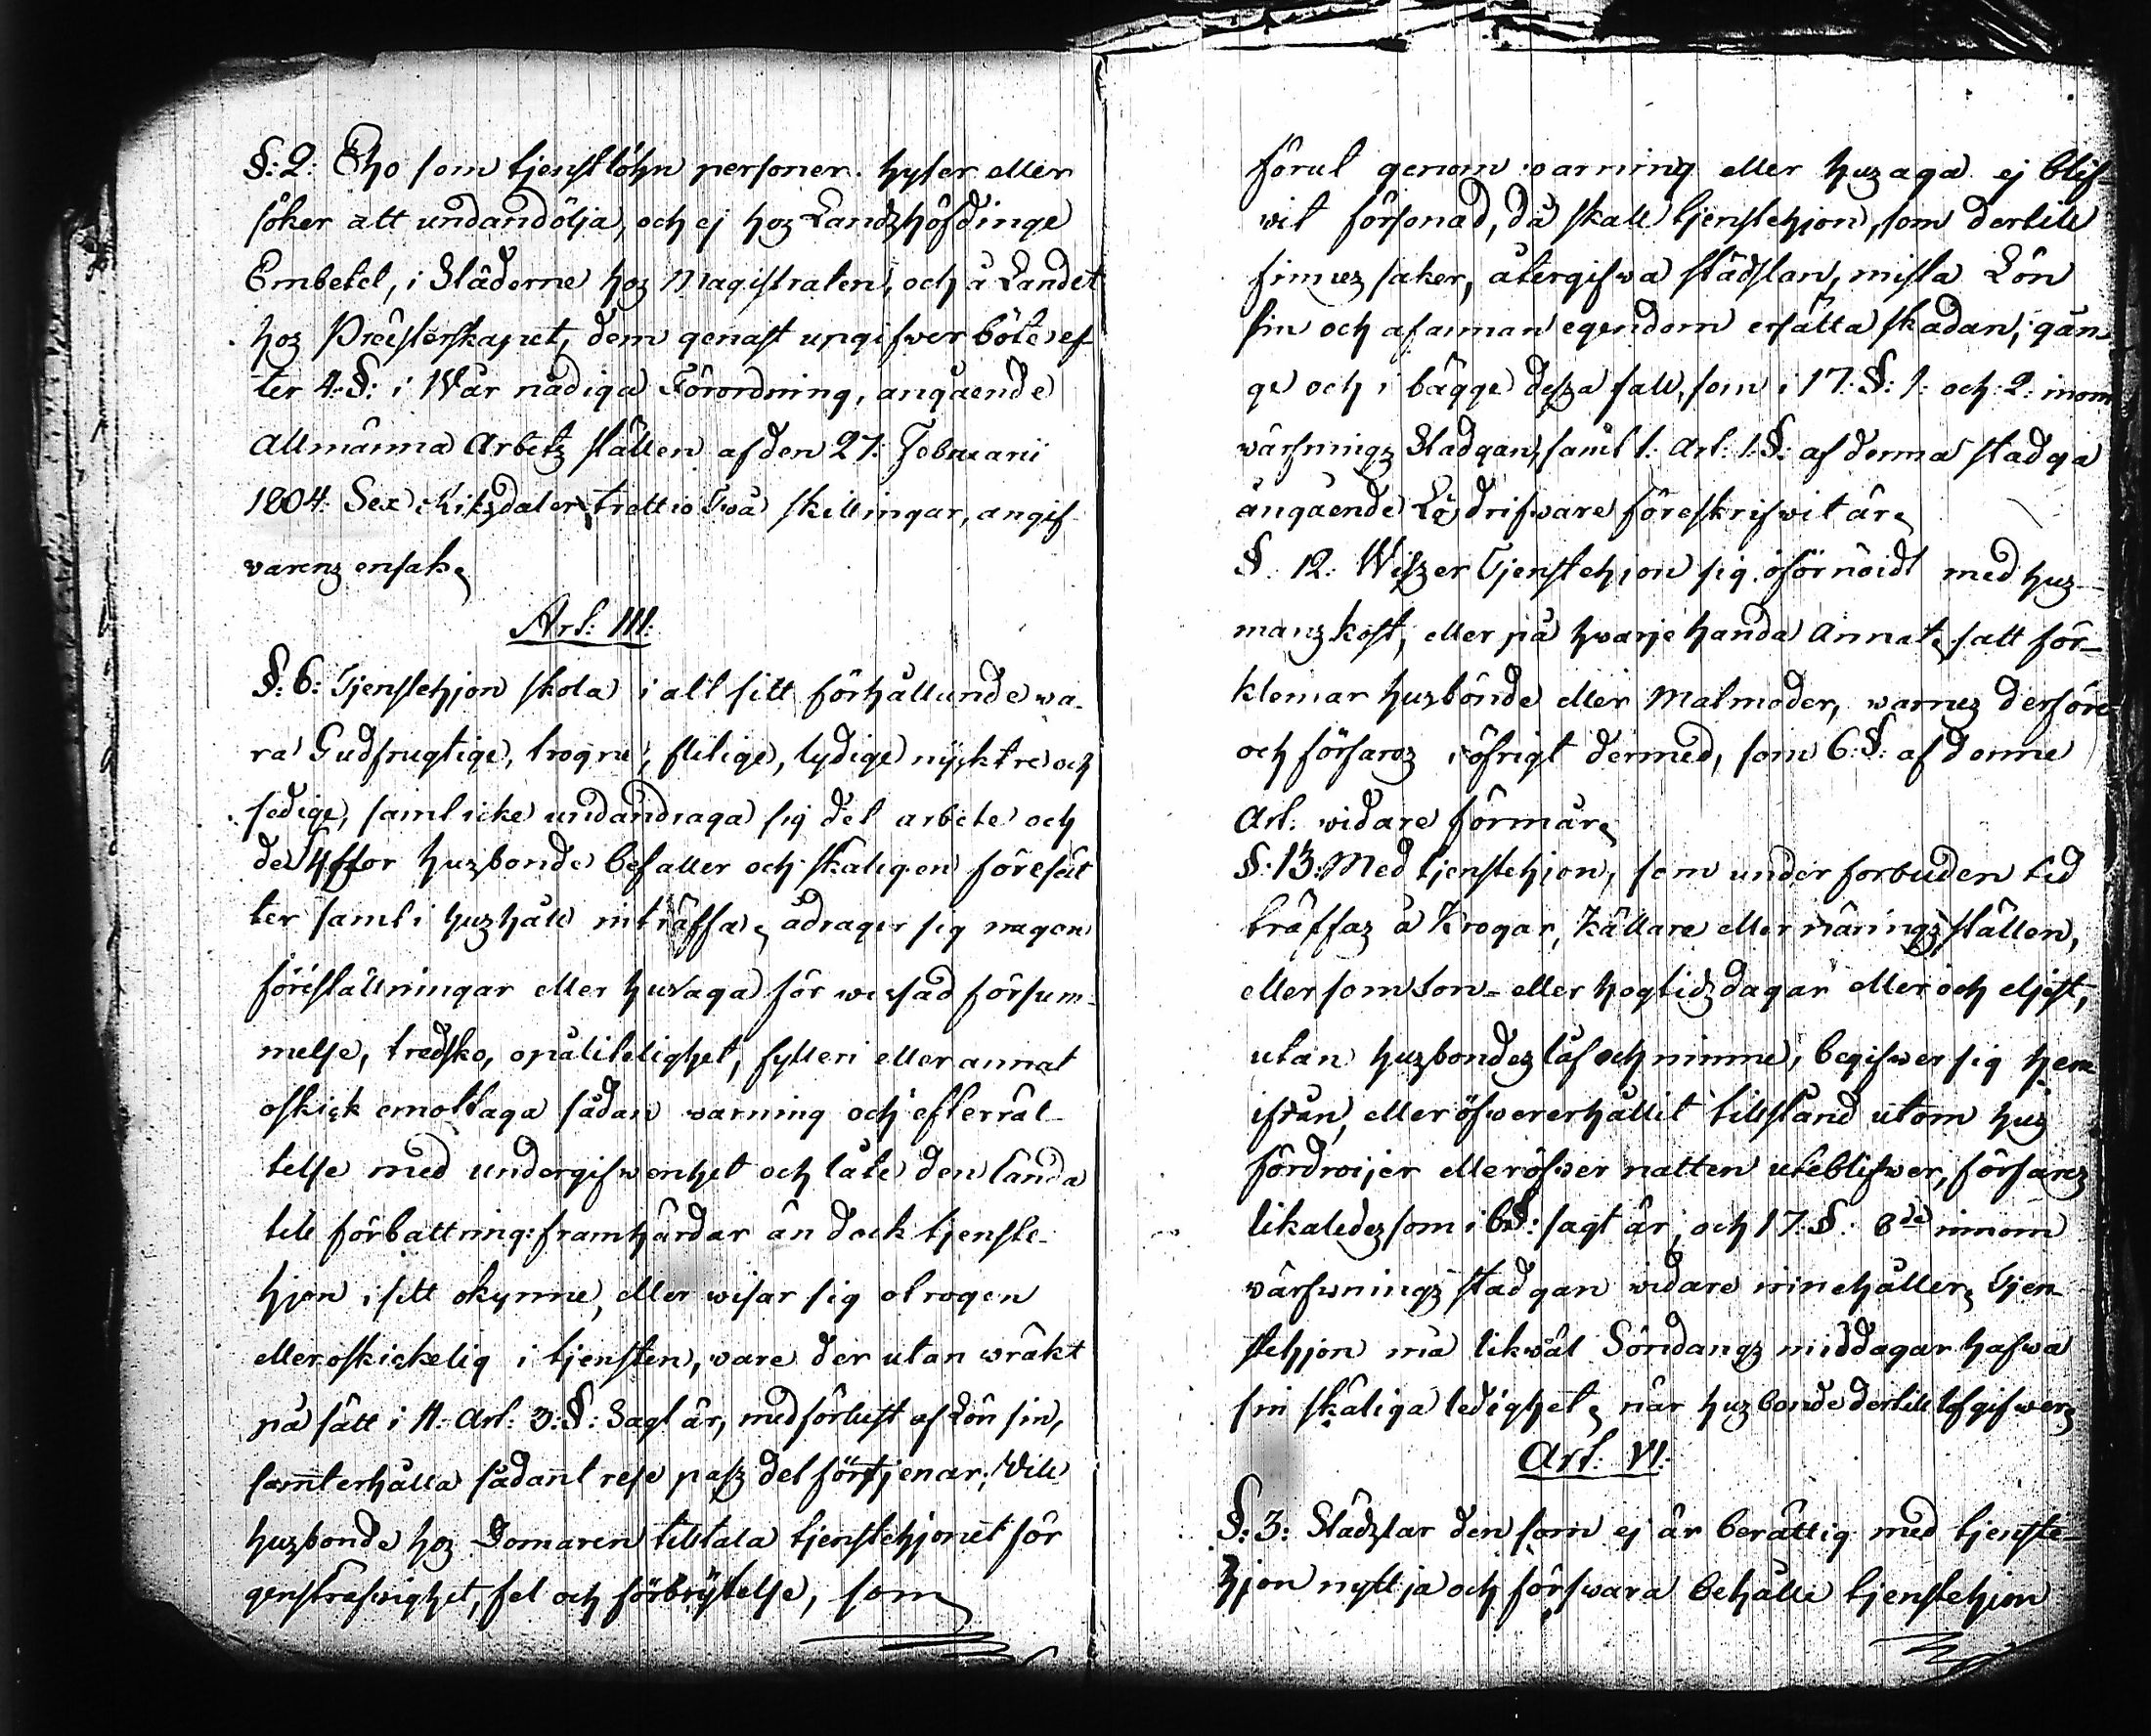 §: 2: Eho som tjenstlöhn personer hyser eller
söker att undandölja, och ej hoz Landzhöfdinge
Embetet, i Städerne hoz Magistraten, och å Landet
hoz Presterskapet, dem genast upgifwer böte ef-
ter 4. §: i Wår nådiga Förordning, angående
Allmänna Arbetz ställen af den 27: Februarii
1804. Sex Rikzdaler trettio Twå skillingar, angif-
varenz ensak.
Art: III:
§: 6: Tjenstehjon skola i alt sitt förhållande wa-
ra Gudfrugtige, trogne, flitige, lydige nycktre och
sedige, samt icke undandraga sig det arbete och
de huzbonde befaller och skäligen föresät
ter samt i huzhåld inträffa, ådrager sig nagon
föreställningar eller husaga för wisad försum-
melse, tredsko, opålitelighet, fylleri eller annat
oskick emottaga sådan varning och efterrät-
telse med undergifwenhet och låte den lända
till förbattring: framhärdar än dock tjenste-
hjon i sitt okynne, eller wisar sig otrogen
eller oskickelig i tjensten, vare der utan wräkt
på sätt i II. Art: 3: §: Sagt är, med förlust af Lön sin,
samt erhålla sådant rese pasz det förtjenar; Vill
huzbonde hoz Domaren tilltala tjenstehjonet för
genstrefwighet, fel och förbrytelse, som
förut genom varning eller huzaga ej blif-
vit försonad, då skall tjenstehjon, som dertill
finnez saker, återgifwa städslan, mista Lön
sin och af annan egendom ersätta skadan; gån-
ge och i bägge desza fall, som i 17. §: 1: och 2: inom
värfningz Stadgan, samt 1. Art: 1. §: af denna stadga
angående Lösdrifware föreskrifwit är.
§. 12: Wiszer Tjenstehjon sig oförnöidt med huz-
manz kost, eller på hwarje handa Annat satt för-
klenar huzbonde eller Matmoder, warnez derföre
och förfarez i öfrigt dermed, som 6: §: af denne
Art: widare förmår.
§. 13: Med tjenstehjon, som under forbuden tid
träffaz å Krogar, Källare eller näringz ställen,
eller som Son- eller hogtidz dagar eller och eljest,
utan huzbondez låf och minne, begifwer sig hem
ifrån, eller öfwer erhållit tillstånd utom huz
fördröijer eller öfwer natten uteblifwer, förfarez
likaledez som i 6 §: sagt är, och 17. §: 8de innom
värfwningz stadgan vidare innehåller. Tjen-
stehjon må likwäl Söndangz middagar hafwa
sin skäliga ledighet, när huzbonde dertill lof gifwer.
Art: VI:
§: 3: Städslar den som ej är berättig med tjenste-
hjon nyttja och förswara behålle tjenstehjon